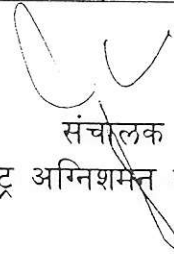 संचालक
ट्र अग्निशमन